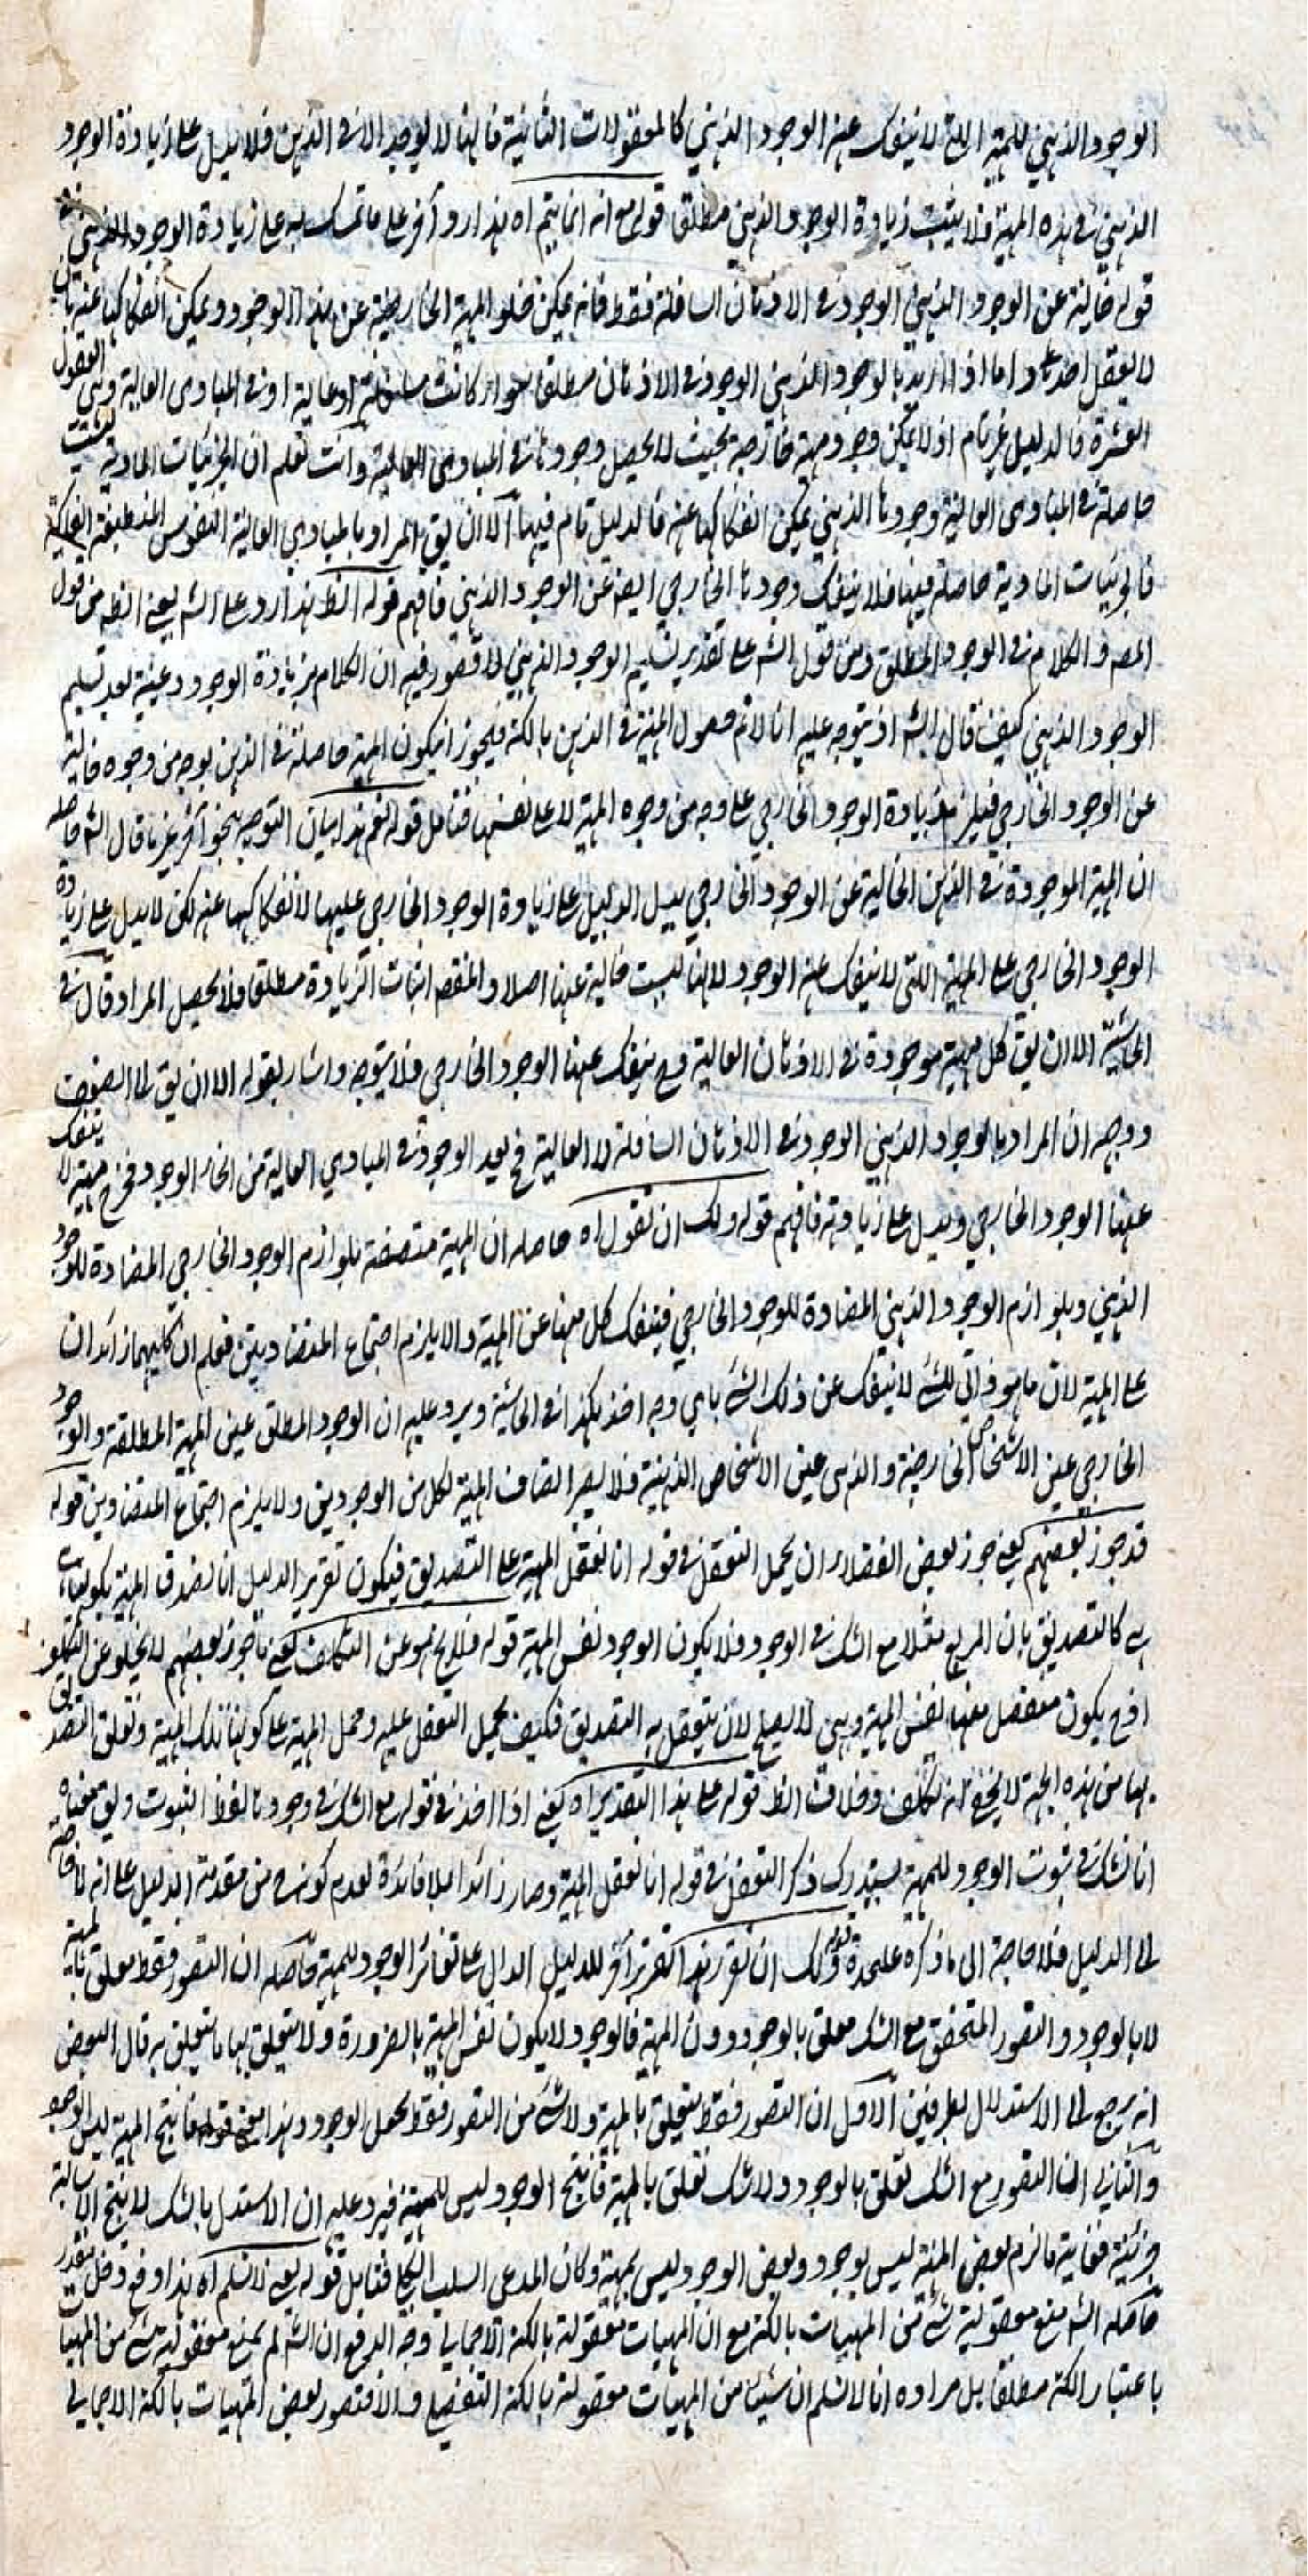 الوجود الذهني للمهية التي لا ينفك عنه الوجود الذهني كالمعقولات الثانية فانها لا توجد الا في الذهن فلا يدل على زيادة الوجود
الذهني في هذه المهية فلا يثبت زيادة الوجود الذهني مطلقا قوله مع انه انما يتم اه هذا رد آخر على ما تمسك به على زيادة الوجود الذهني
قوله خالية عن الوجود الذهني الوجود في الاذهان السافلة فقط فانه يمكن خلو المهية الخارجية عن هذا الوجود ويمكن انفكاكها عنه بان
لا يعقل احد واما اذا اريد بالوجود الذهني الوجود في الاذهان مطلقا سواء كانت سافلة او عالية او في المبادي العالية وهي العقول
العشرة فالدليل غير تام اذ لا يمكن وجود مهية خارجية بحيث لا يحصل وجودها في المبادي العالية وانت تعلم ان الجزئيات المادية ليست
حاصلة في المبادي العالية وجودها الذهني يمكن انفكاكها عنه فالدليل تام فيها الا ان يق المراد بالمبادي العالية النفوس المنطبعة الفلكية
فالجزئيات المادية حاصلة فيها فلا ينفك وجودها الخارجي ايضا عن الوجود الذهني فافهم قوله الظ هذا رد على الشه يعني الظه من قول
المصه والكلام في الوجود المطلق ومن قول الشه على تقدير تسليم الوجود الذهني لا قصور فيه ان الكلام في زيادة الوجود وعينيه بعد تسليم
الوجود الذهني كيف قال الشه اذ يتوجه عليه انا لا نم حصول المهية في الذهن بالكنه فيجوز ان يكون المهية حاصلة في الذهن بوجه من وجوه خالية
عن الوجود الخارجي فيلزم زيادة الوجود الخارجي على وجه من وجوه المهية لا على نفسها فتأمل قوله نعم هذا بيان التوجه بنحو آخر غير ما قال الشه حاصله
ان المهية الموجودة في الذهن الخالية عن الوجود الخارجي يدل الدليل على زيادة الوجود الخارجي عليها لانفكاكها عنه لكن لا يدل على زيادة
الوجود الخارجي على المهية اللتي لا ينفك عنه الوجود لانها ليست خالية عنها اصلا والمقصد اثبات الزيادة مطلقا فلا يحصل المراد قال في
الحاشية الا ان يق كل مهية موجودة في الاذهان العالية فح ينفك عنها الوجود الخارجي فلا يتوجه واشار بقوله الا ان يق الى الضعف
ووجهه ان المراد بالوجود الذهني الوجود في الاذهان السافلة لا العالية فح يعد الوجود في المبادي العالية من انحاء الوجود فخرج مهية لا ينفك
عنها الوجود الخارجي ويدل على زيادته فافهم قوله ولك ان تقول اه حاصله ان المهية متصفة بلوازم الوجود الخارجي المضادة للوجود
الذهني وبلوازم الوجود الذهني المضادة للوجود الخارجي فينفك كل منها عن المهية والا يلزم اجتماع المتضادين فعلم ان كليهما زائدان
على المهية لان ما هو ذاتي للشئ لا ينفك عن ذلك الشئ باي وجه اخذ هكذا في الحاشية ويرد عليه ان الوجود المطلق عين المهية المطلقة والوجود
الخارجي عين الاشخاص الخارجية والذهني عين الاشخاص الذهنية فلا يصير اتصاف المهية بكل من الوجودين ولا يلزم اجتماع المتضادين قوله
قد جوز بعضهم يعني جوز بعض الفضلاء ان يحمل التعقل في قوله انا نعقل المهية على التصديق فيكون تقرير الدليل انا نصدق المهية بكونها
هي كالتصديق بان المربع مثلا مع الشك في الوجود فلا يكون الوجود نفس المهية قوله فلا يخلو عن التكلف يعني ما جوز بعضهم لا يخلو عن التكلف
اذ ح يكون متعلق نفس المهية وهي لا يصلح لان يتعلق به التصديق فكيف يحمل التعقل عليه وحمل المهية على كونها تلك المهية وتعلق التصديق
بها من هذه الجهة لا يخفى انه تكلف وخلاف الظ قوله على هذا التقدير اه يعني اذا اخذ في قوله مع الشك في وجودها لفظ الثبوت ويق معناه
انا نشك في ثبوت الوجود للمهية يستدرك ذكر التعقل في قوله انا نعقل المهية وصار زائدا بلا فائدة لعدم كونه من مقدمة الدليل على انه لا حاجة
الى الدليل فلا حاجة الى ما ذكره علحدة قوله ولك ان تقرر هذا تقرير آخر للدليل الدال على تغاير الوجود للمهية حاصله ان التصور فقط متعلق بالمهية
لا بالوجود والتصور المتحقق مع الشك متعلق بالوجود دون المهية فالوجود لا يكون نفس المهية بالضرورة ولا يتعلق بها ما يتعلق به قال البعض
انه يرجع الى الاستدلال بطريقين الاول ان التصور فقط يتعلق بالمهية ولا شئ من التصور فقط يحمل الوجود وهذا معنى قوله فانتج المهية ليس الوجود
والثاني ان التصور مع الشك تعلق بالوجود ولا شك تعلق بالمهية فانتج الوجود ليس المهية فيرد عليه ان الاستدل بالشك لا ينتج الا سالبة
جزئية فغاية ما لزم بعض المهية ليس بوجود وبعض الوجود ليس بمهية وكان المدعى السلب الكلي فتأمل قوله يعني لا نسلم اه هذا دفع دخل مقدر
حاصله الشه منع معقولية شئ من المهيات بالكنه مع ان المهيات معقولة بالكنه الاجمالي وجه الدفع ان الشه لم يمنع معقولية شئ من المهيات
باعتبار الكنه مطلقا بل مراده انا لا نسلم ان شيئا من المهيات معقولة بالكنه التفصيلي والا فتصور بعض المهيات بالكنه الاجمالي